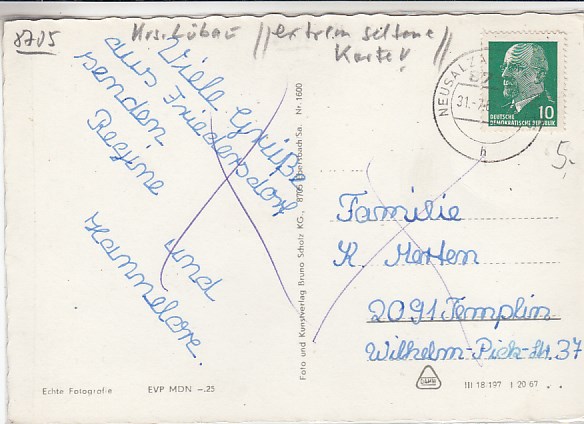 8705
Krs. Löbau // extrem seltene //
Karte!
Viele Grüße
aus Friedersdorf
senden
Regine
und
Hannelore.
Foto und Kunstverlag Bruno Scholz KG., 8705 Ebersbach Sa. Nr. 1600
NEUSALZA
31.-7.
h
DEUTSCHE
DEMOKRATISCHE REPUBLIK
10
5,-
Familie
K. Merten
2091 Templin
Wilhelm-Pieck-Str. 37
Echte Fotografie
EVP MDN –.25
III 18 197 I 20 67